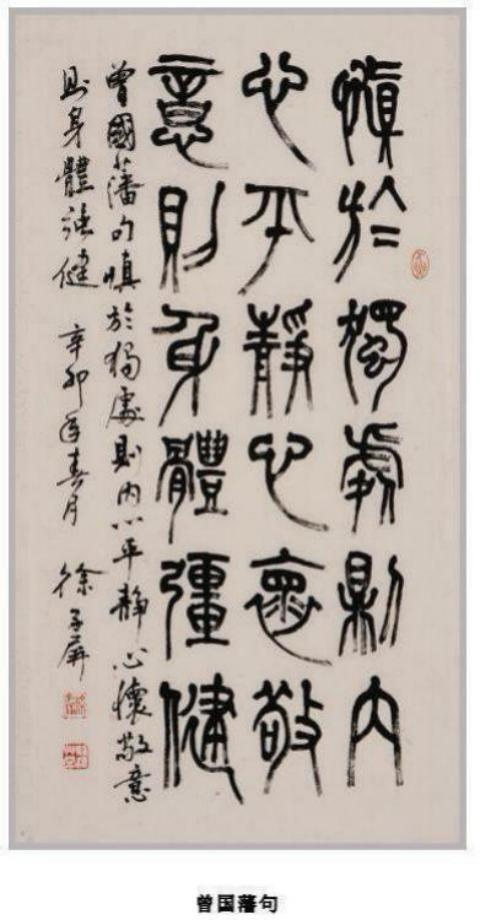 慎於獨處則内
心平靜心懷敬
意則身體彊健
曾國藩句慎於獨處則内心平靜心懷敬意
則身體強健 辛卯年春月 徐子屏
曾国藩句